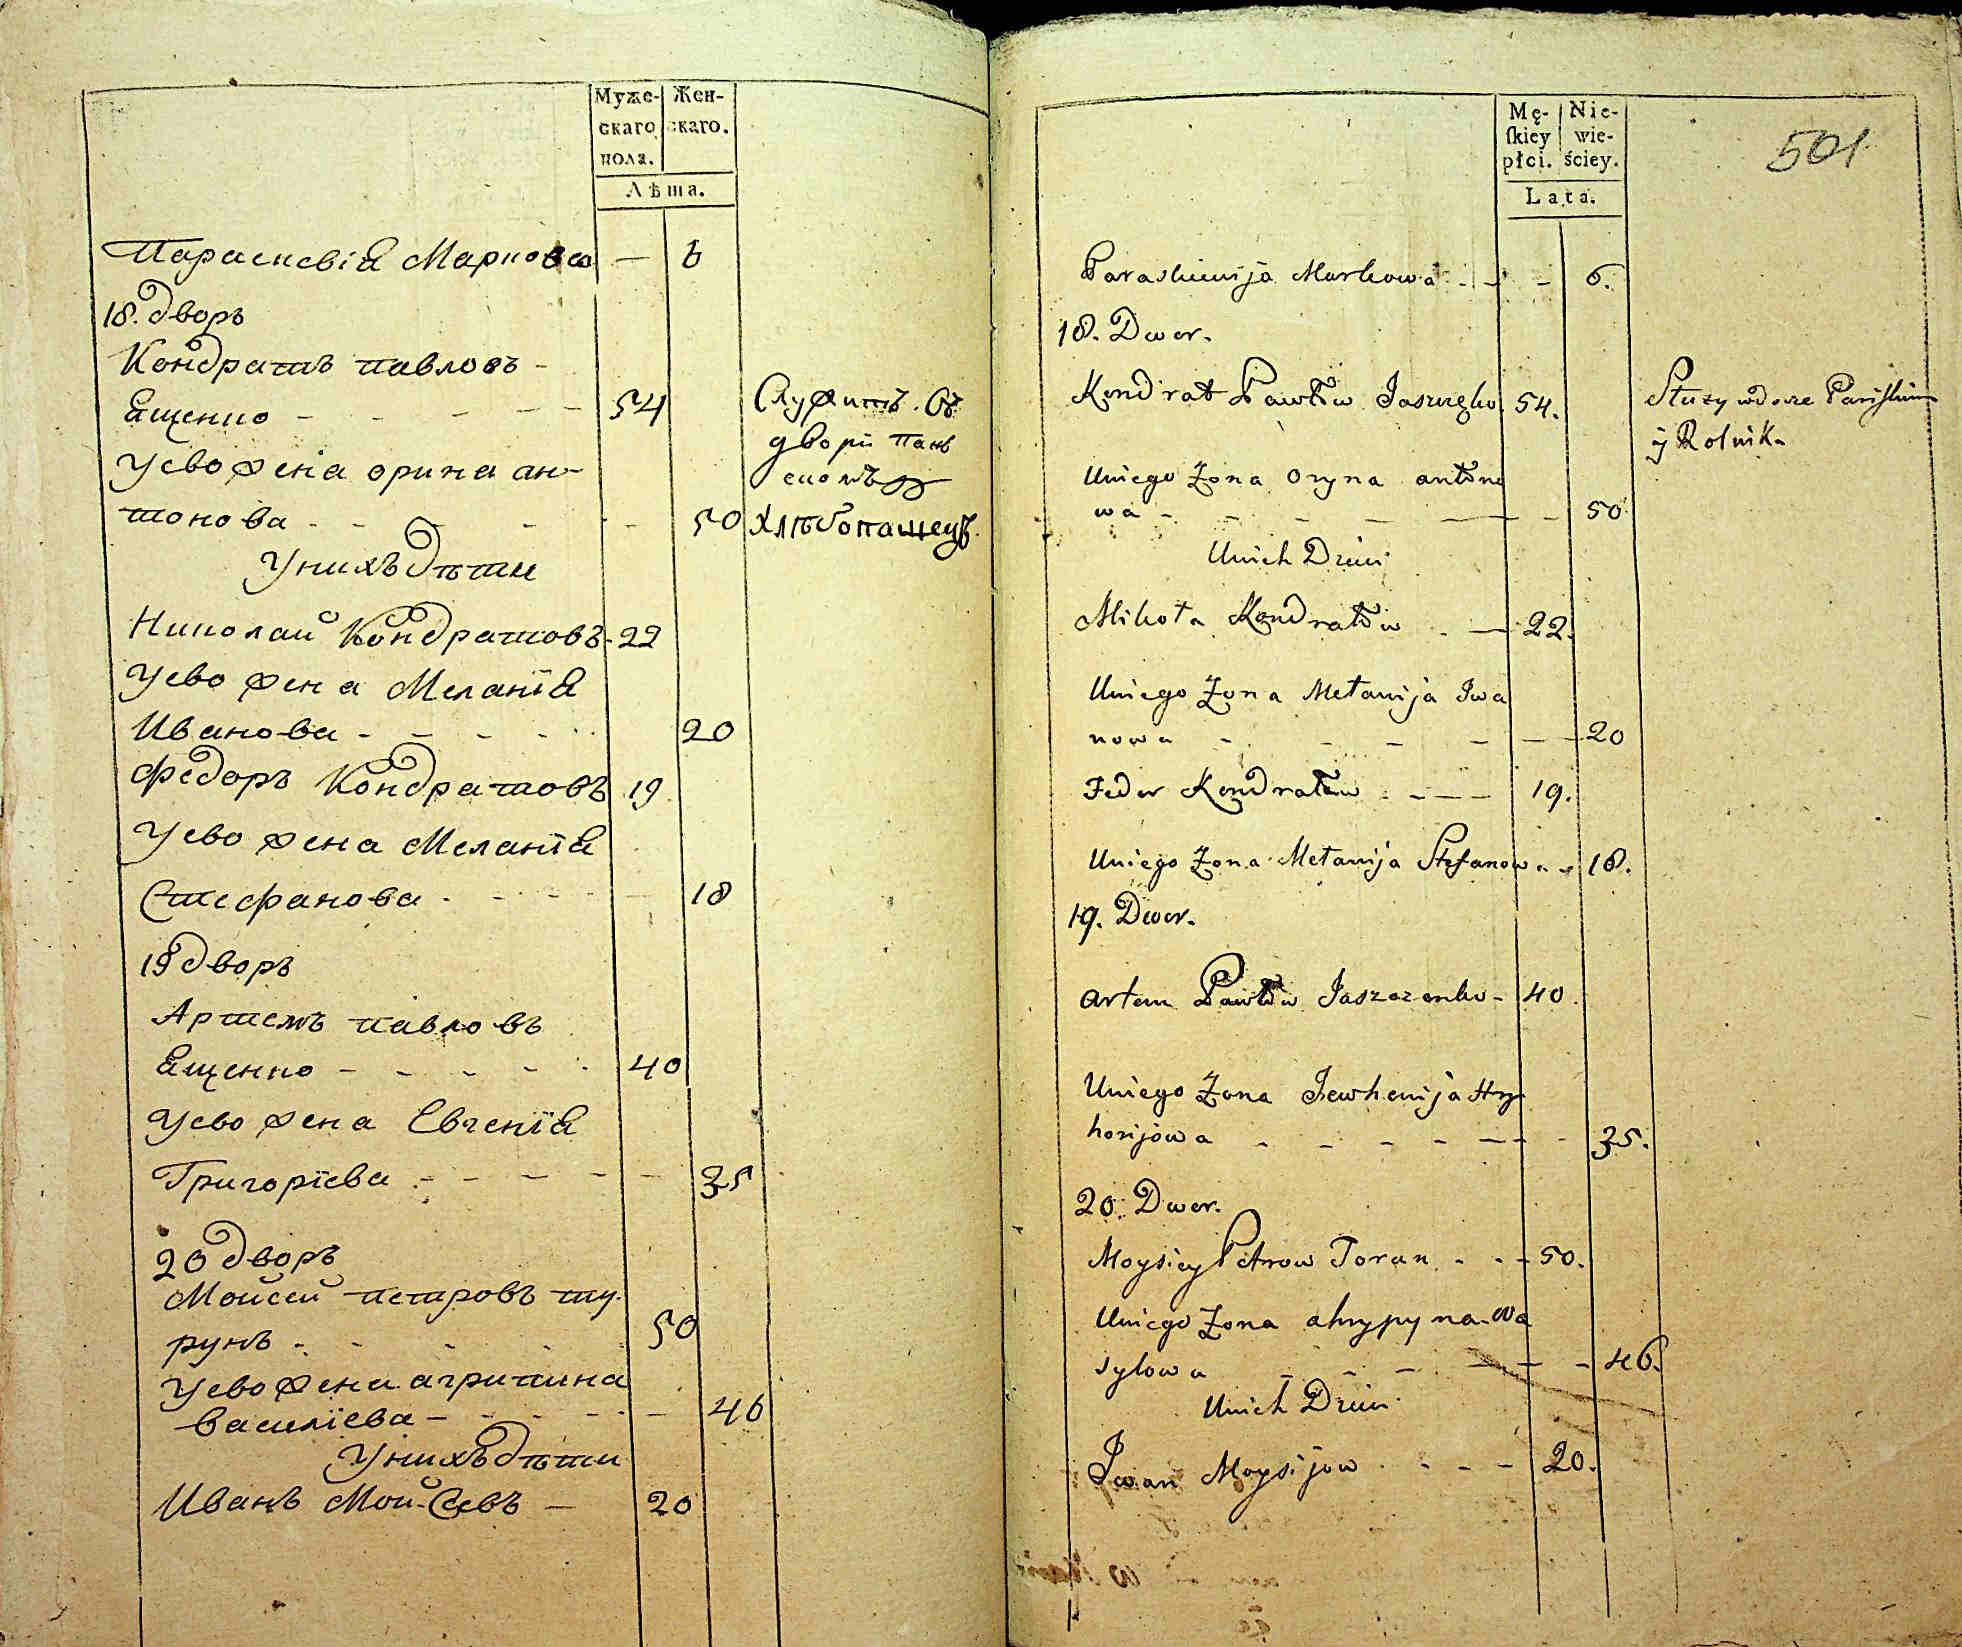 Муже- Жен-
скаго скаго.
пола.
Лѣта.
Параскевія Маркова — 6
18. дворъ
Кондратъ павловъ -
Ященко - - - - - 54
Служитъ. Въ
дворѣ пань
скомъ
Хлѣбопашецъ.
Уево жена орина ан-
тонова - - - - - 50
Унихъ дѣти
Николай Кондратовъ - 22
Уево жена Меланія
Иванова - - - - - 20
Федоръ Кондратовъ 19
Уево жена Меланія
Стефанова - - - - - 18
19 дворъ
Артемъ павловъ
Ященко - - - - - 40
Уево жена Евгенія
Григоріева - - - - - 35
20 дворъ
Моисей петровъ ту-
рунъ - - - - 50
Уево жена агрипина
василіева - - - - - 46
Унихъ дѣти
Иванъ Мойсеевъ — 20
501
Mę- Nie-
skiey wie-
płci. ściey.
Lata.
Paraskiewija Markowa - - - 6.
18. Dwor.
Kondrat Pawłow Jaszczęko 54.
Służy w dworze Pańskim
y Rolnik.
Uniego Żona Oryna antono
wa - - - - - - 50
Unich Dzieci
Mikoła Kondratów - — 22.
Uniego Żona Mełanija Iwa
nowa - - - - - - 20
Fedor Kondratow - - — 19.
Uniego Żona Mełanija Stefanowa - 18.
19. Dwor.
Artem Pawłow Jaszczenko - 40.
Uniego Żona Jewhenija Hry
horijowa - - - - - - 35.
20. Dwor.
Moysiey Petrow Torun - - - 50.
Uniego Żona ahrypyna Wa
sylowa - - - - - - 46.
Unich Dzieci
Iwan Moysijow - - - - 20.